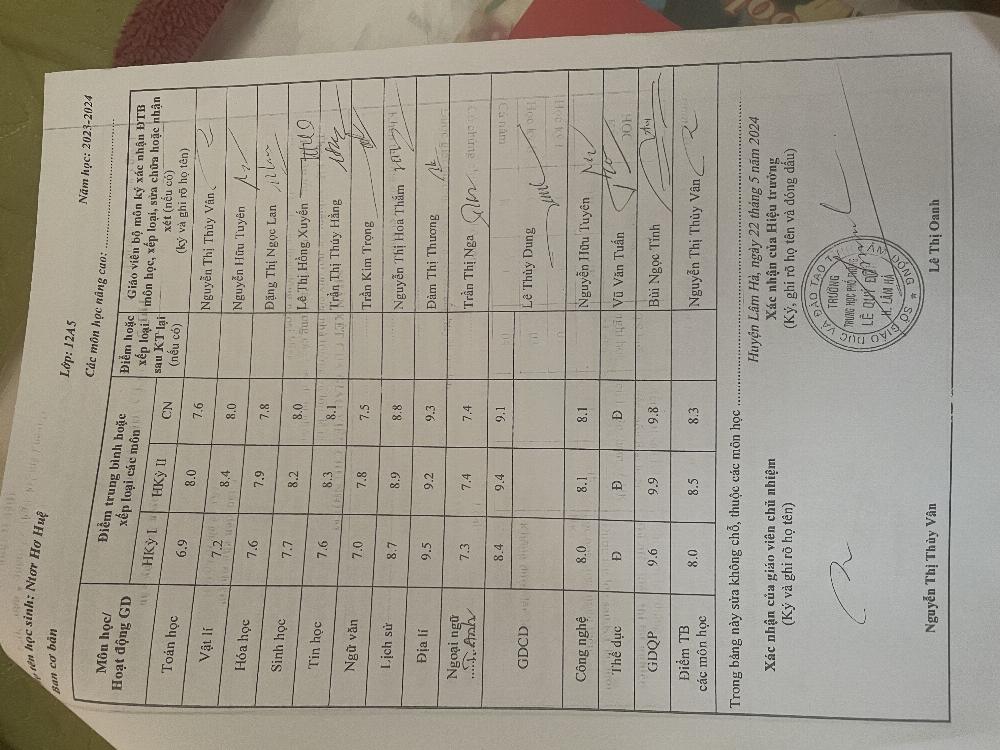 tên học sinh: Ntơr Hơ Huệ
Lớp: 12A5
Năm học: 2023-2024
Ban cơ bản
Các môn học nâng cao:
Môn học/ Hoạt động GD
Điểm trung bình hoặc xếp loại các môn
Điểm hoặc xếp loại sau KT lại (nếu có)
Giáo viên bộ môn ký xác nhận ĐTB môn học, xếp loại, sửa chữa hoặc nhận xét (nếu có)
(Ký và ghi rõ họ tên)
HKỳ I HKỳ II CN
Toán học 6.9 8.0 7.6 Nguyễn Thị Thùy Vân
Vật lí 7.2 8.4 8.0 Nguyễn Hữu Tuyên
Hóa học 7.6 7.9 7.8 Đặng Thị Ngọc Lan
Sinh học 7.7 8.2 8.0 Lê Thị Hồng Xuyên
Tin học 7.6 8.3 8.1 Trần Thị Thúy Hằng
Ngữ văn 7.0 7.8 7.5 Trần Kim Trọng
Lịch sử 8.7 8.9 8.8 Nguyễn Thị Hoa Thắm
Địa lí 9.5 9.2 9.3 Đàm Thị Thương
Ngoại ngữ T. Anh 7.3 7.4 7.4 Trần Thị Nga
GDCD 8.4 9.4 9.1 Lê Thùy Dung
Công nghệ 8.0 8.1 8.1 Nguyễn Hữu Tuyên
Thể dục Đ Đ Đ Vũ Văn Tuấn
GDQP 9.6 9.9 9.8 Bùi Ngọc Tính
Điểm TB các môn học 8.0 8.5 8.3 Nguyễn Thị Thùy Vân
Trong bảng này sửa không chỗ, thuộc các môn học
Huyện Lâm Hà, ngày 22 tháng 5 năm 2024
Xác nhận của giáo viên chủ nhiệm
(Ký và ghi rõ họ tên)
Xác nhận của Hiệu trưởng
(Ký, ghi rõ họ tên và đóng dấu)
SỞ GIÁO DỤC VÀ ĐÀO TẠO
TRƯỜNG
TRUNG HỌC PHỔ THÔNG
LÊ QUÝ ĐÔN
H. LÂM HÀ
Nguyễn Thị Thùy Vân
Lê Thị Oanh